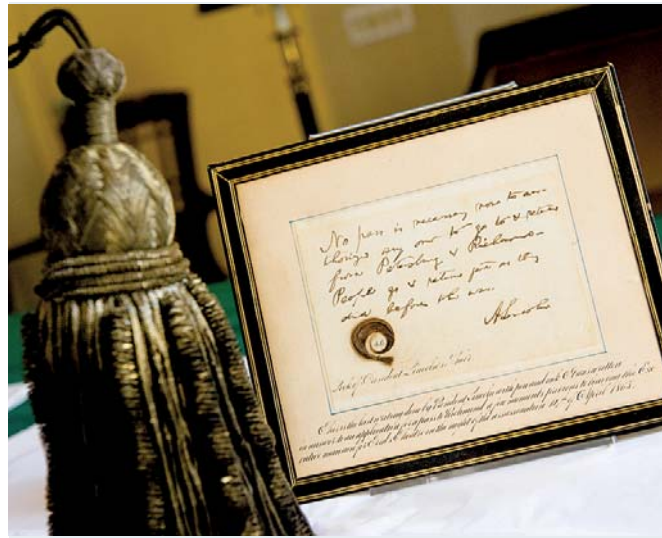 No pass is necessary now to au-
thorize any one to go to & return
from Petersburg & Richmond—
People go & return just as they
did before the war.
A Lincoln
Lock of President Lincoln's hair
This is the last writing done by President Lincoln with pen and ink. It was written
in answer to an application for a pass to Richmond a few moments previous to leaving the Exe
cutive mansion for Ford's theatre on the night of the assassination 14th of April 1865.